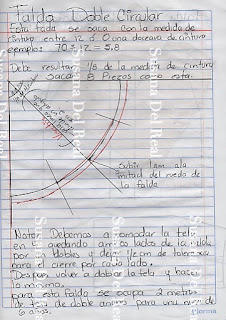 Falda Doble Circular
Esta falda se saca con la medida de
cintura entre 12 ó 0 una doceava de cintura
ejemplo: 70 ÷ 12 = 5.8
Debe resultar 1/8 de la medida de cintura
saca 8 Piezas como esta.
Subir 1cm. a la
mitad del ruedo de
la falda
Nota: Debemos acomodar la tela
en 4 quedando ambos lados de la
por dobles y dejar 1/2 cm de tolerancia
para el cierre por cada lado.
Despues volver a doblar la tela y hacer
lo mismo.
para esta falda se ocupa 2 metros
de de doble ancho para una niña de
6 años.
Susana Del Real
Susana Del Real
Susana Del Real
Norma